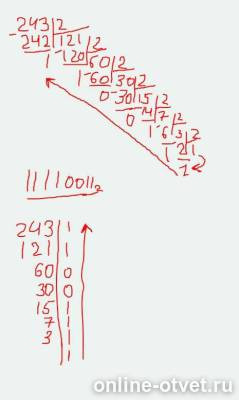 -243|2
242|121|2
1-120|60|2
1-60|30|2
0-30|15|2
0 14|7|2
1-6|3|2
1 2|1
1
11110011₂
243|1
121|1
60|0
30|0
15|1
7|1
3|1
|1
online-otvet.ru